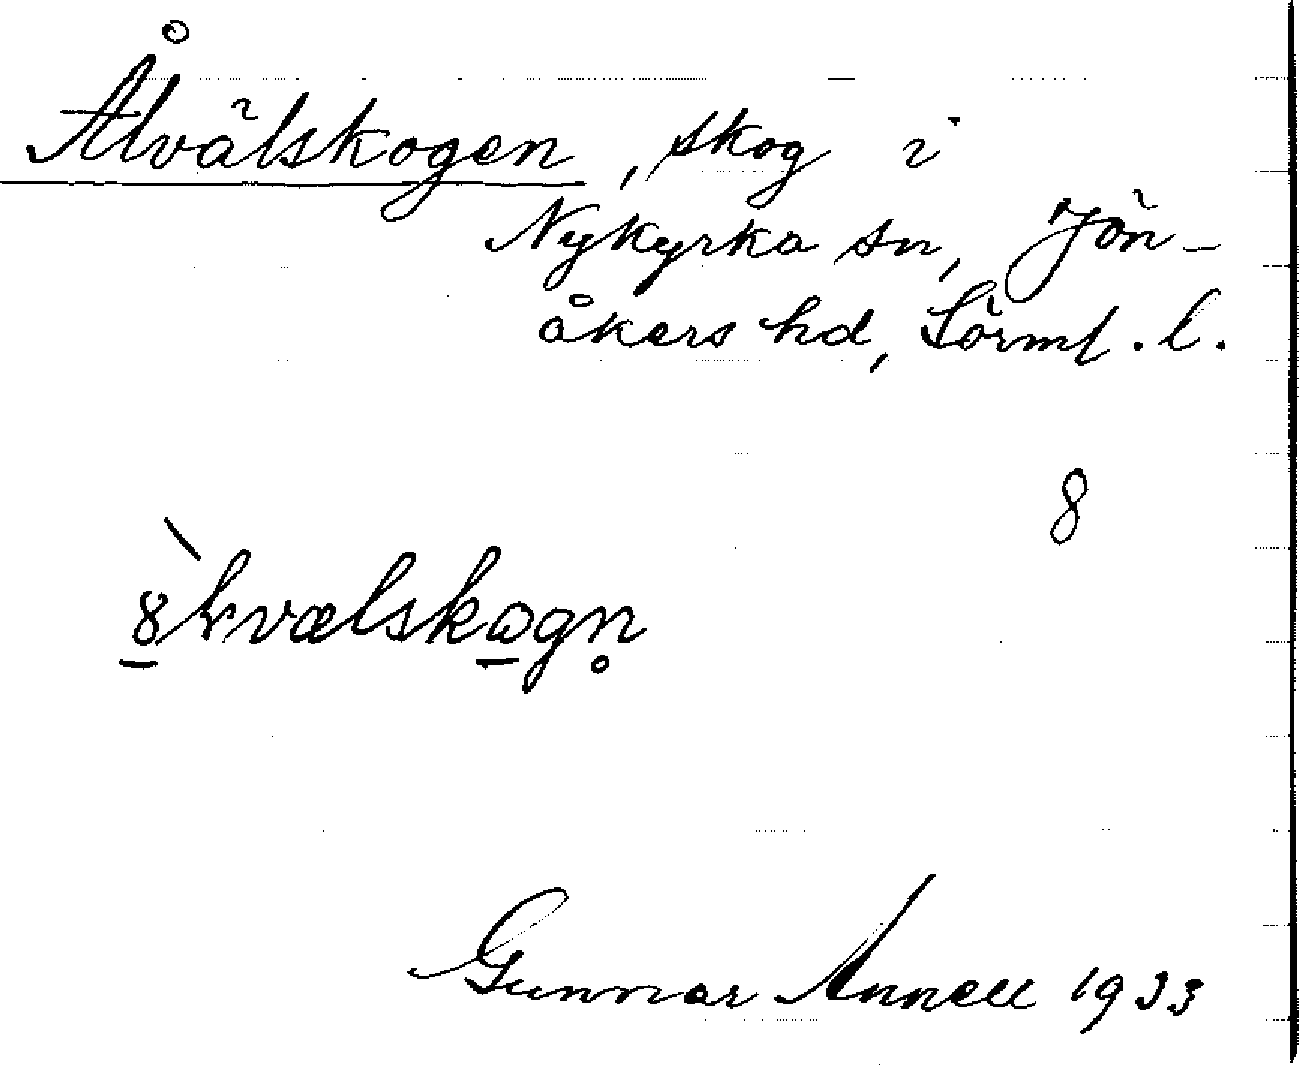 Ålvälskogen, skog i
Nykyrka sn, Jön-
åkers hd, Sörml. l.
8
Gunnar Annell 1933